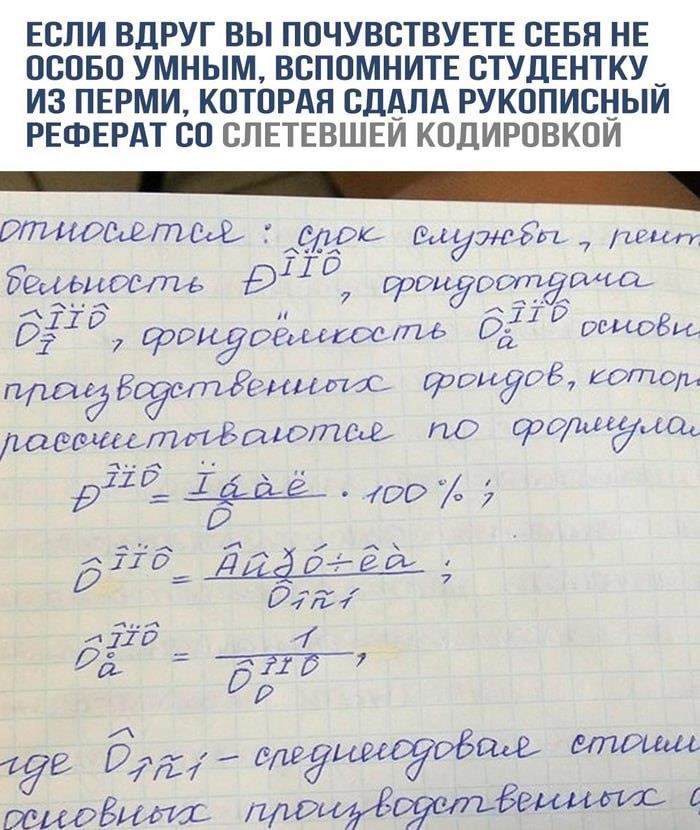 ЕСЛИ ВДРУГ ВЫ ПОЧУВСТВУЕТЕ СЕБЯ НЕ
ОСОБО УМНЫМ, ВСПОМНИТЕ СТУДЕНТКУ
ИЗ ПЕРМИ, КОТОРАЯ СДАЛА РУКОПИСНЫЙ
РЕФЕРАТ СО СЛЕТЕВШЕЙ КОДИРОВКОЙ
относятся: срок службы, рент
бельность Ð^ÎÏÔ, фондоотдача
Ô_Î^ÎÏÔ, фондоёмкость Ô_å^ÎÏÔ основн
производственных фондов, котор
рассчитываются по формулам
Ð^ÎÏÔ = Ïáàë / Ô · 100%;
Ô^ÎÏÔ = Âûðó÷êà / Ôîñí;
Ô_å^ÎÏÔ = 1 / Ô_О^ÎÏÔ,
где Ôîñí - среднегодовая стоим
основных производственных